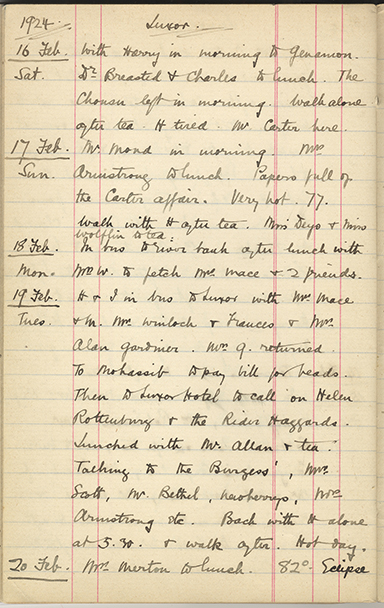 1924. Luxor.
16 Feb. With Harry in morning to Genamon.
Sat. Dr Breasted & Charles to lunch. The
Chonsu left in morning. Walk alone
after tea. H tired. Mr Carter here.
17 Feb. Mr Mond in morning. Mrs
Sun. Armstrong to lunch. Papers full of
the Carter affair. Very hot. 77.
Walk with H after tea. Miss Deyo & Miss
Wolfflin to tea.
18 Feb. In bus to river bank after lunch with
Mon. Mrs W. to fetch Mrs Mace & 2 friends.
19 Feb. H & I in bus to Luxor with Mr Mace
Tues. & M. Mrs Winlock & Frances & Mrs
Alan Gardiner. Mrs G. returned
To Mohassib to pay bill for beads.
Then to Luxor Hotel to call on Helen
Rottenburg & the Rider Haggards.
Lunched with Mr Allan & tea.
Talking to the Burgess', Mrs
Scott, Mr Bethel, Newberrys, Mrs
Armstrong etc. Back with H alone
at 5.30. & walk after. Hot day.
20 Feb. Mrs Merton to lunch. 82°. Eclipse